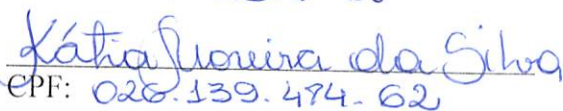 Kátia Moreira da Silva
CPF: 026.139.474-62